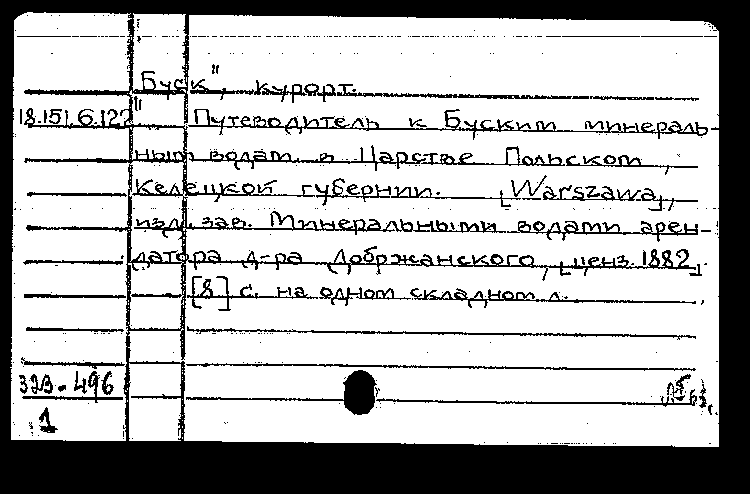 „Буск", курорт.
18.151.6.122 Путеводитель к Буским минераль-
ным водам в Царстве Польском,
Келецкой губернии. [Warszawa],
изд. зав. Минеральными водами арен-
датора д-ра Добржанского, [ценз. 1882].
[8] с. на одном складном л.
32В-496
1